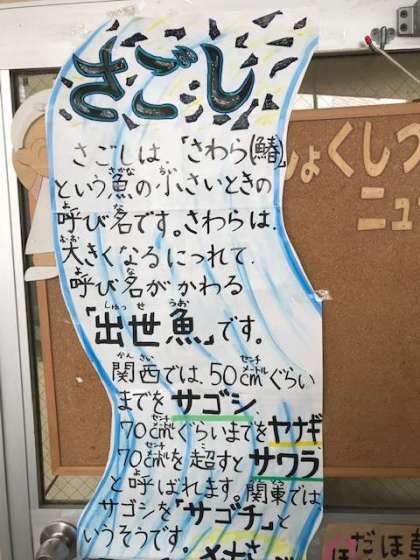 さごし
さごしは、「さわら(鰆)」
という魚の小さいときの
呼び名です。さわらは、
大きくなるにつれて、
呼び名がかわる
「出世魚」です。
関西では、50cmぐらい
までをサゴシ、
70cmぐらいまでをヤナギ、
70cmを超すとサワラ
と呼ばれます。関東では、
サゴシを「サゴチ」と
いうそうです。
くしつ
ニュ
だほ